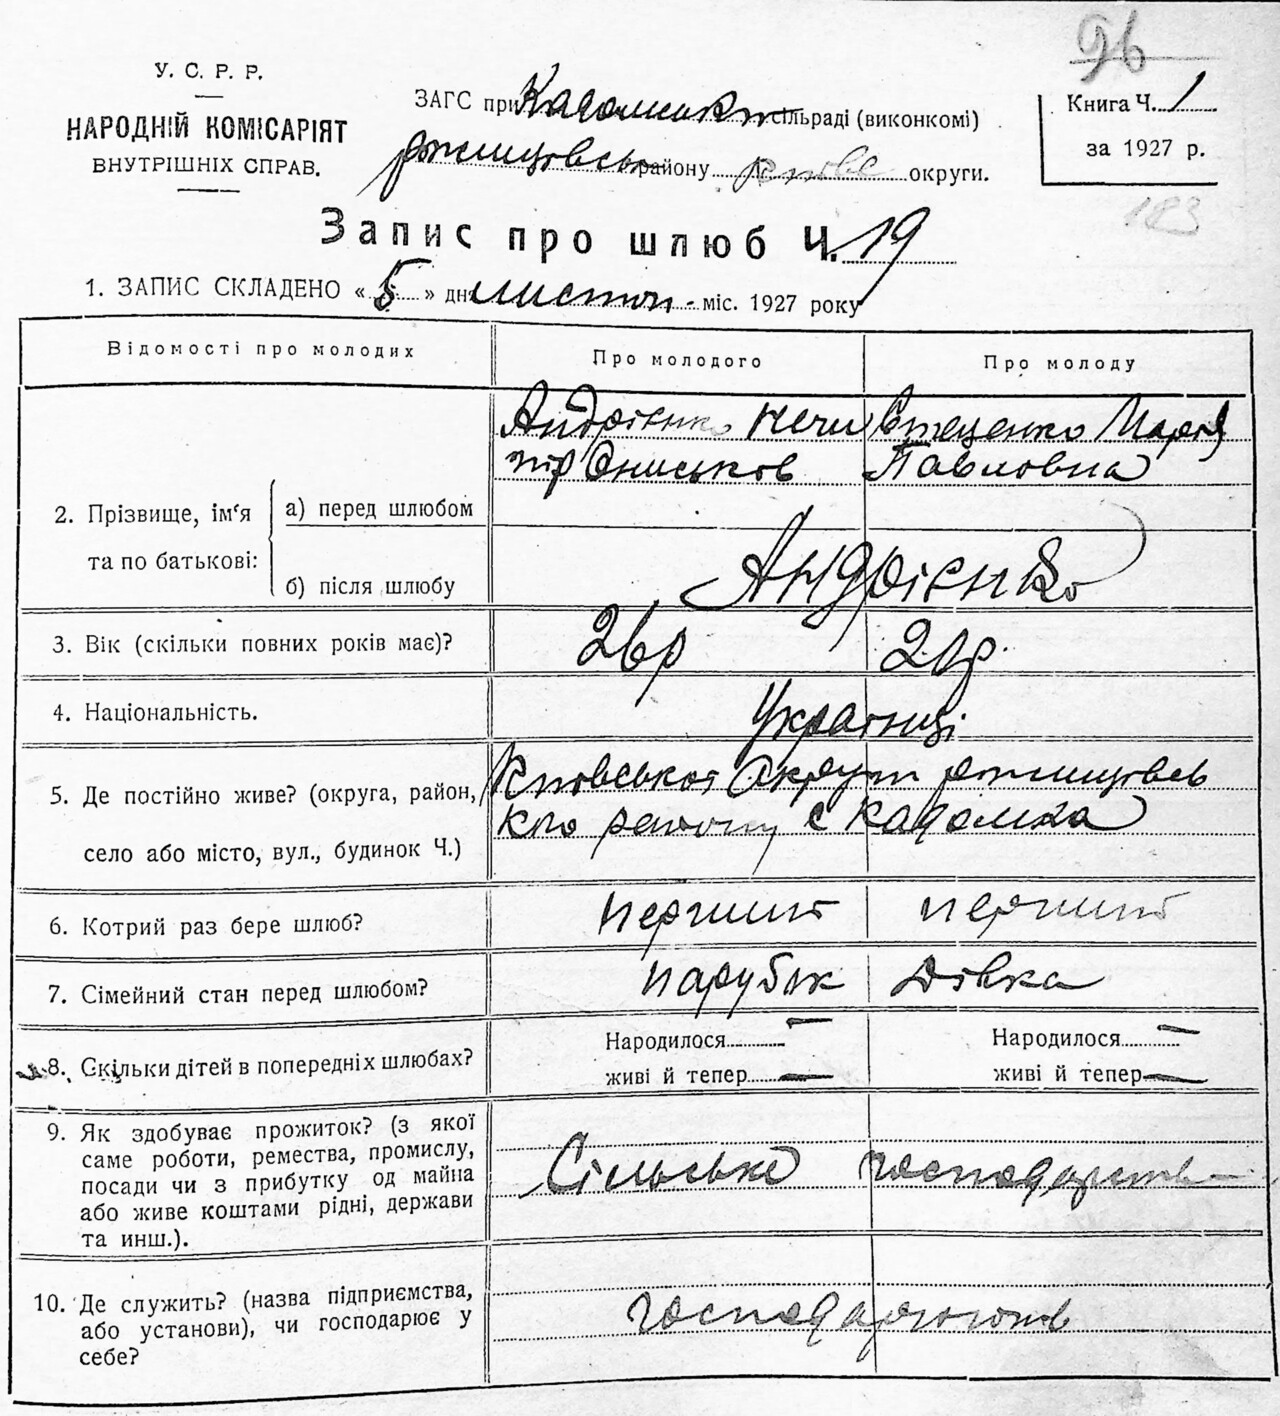 96
У. С. Р. Р.
НАРОДНІЙ КОМІСАРІЯТ
ВНУТРІШНІХ СПРАВ.
ЗАГС при Кадомськ сільраді (виконкомі)
ржищовськ району Київс округи.
Книга Ч. 1
за 1927 р.
183
Запис про шлюб Ч. 19
1. ЗАПИС СКЛАДЕНО « 5 » дн листоп - міс. 1927 року
Відомості про молодих
Про молодого
Про молоду
Андрієнко Ничи
пір Ониськов
Стеценко Марія
Павловна
2. Прізвище, ім'я та по батькові:
а) перед шлюбом
б) після шлюбу
Андрієнко
3. Вік (скільки повних років має)?
26р
20р.
4. Національність.
Українці
5. Де постійно живе? (округа, район,
село або місто, вул., будинок Ч.)
Київської Округи ржищовсь
кго району с Кадомка
6. Котрий раз бере шлюб?
перший
перший
7. Сімейний стан перед шлюбом?
парубок
дівка
8. Скільки дітей в попередніх шлюбах?
Народилося —
живі й тепер —
Народилося —
живі й тепер —
9. Як здобуває прожиток? (з якої
саме роботи, ремества, промислу,
посади чи з прибутку од майна
або живе коштами рідні, держави
та инш.).
Сільське господарств
10. Де служить? (назва підприємства,
або установи), чи господарює у
себе?
господарюють